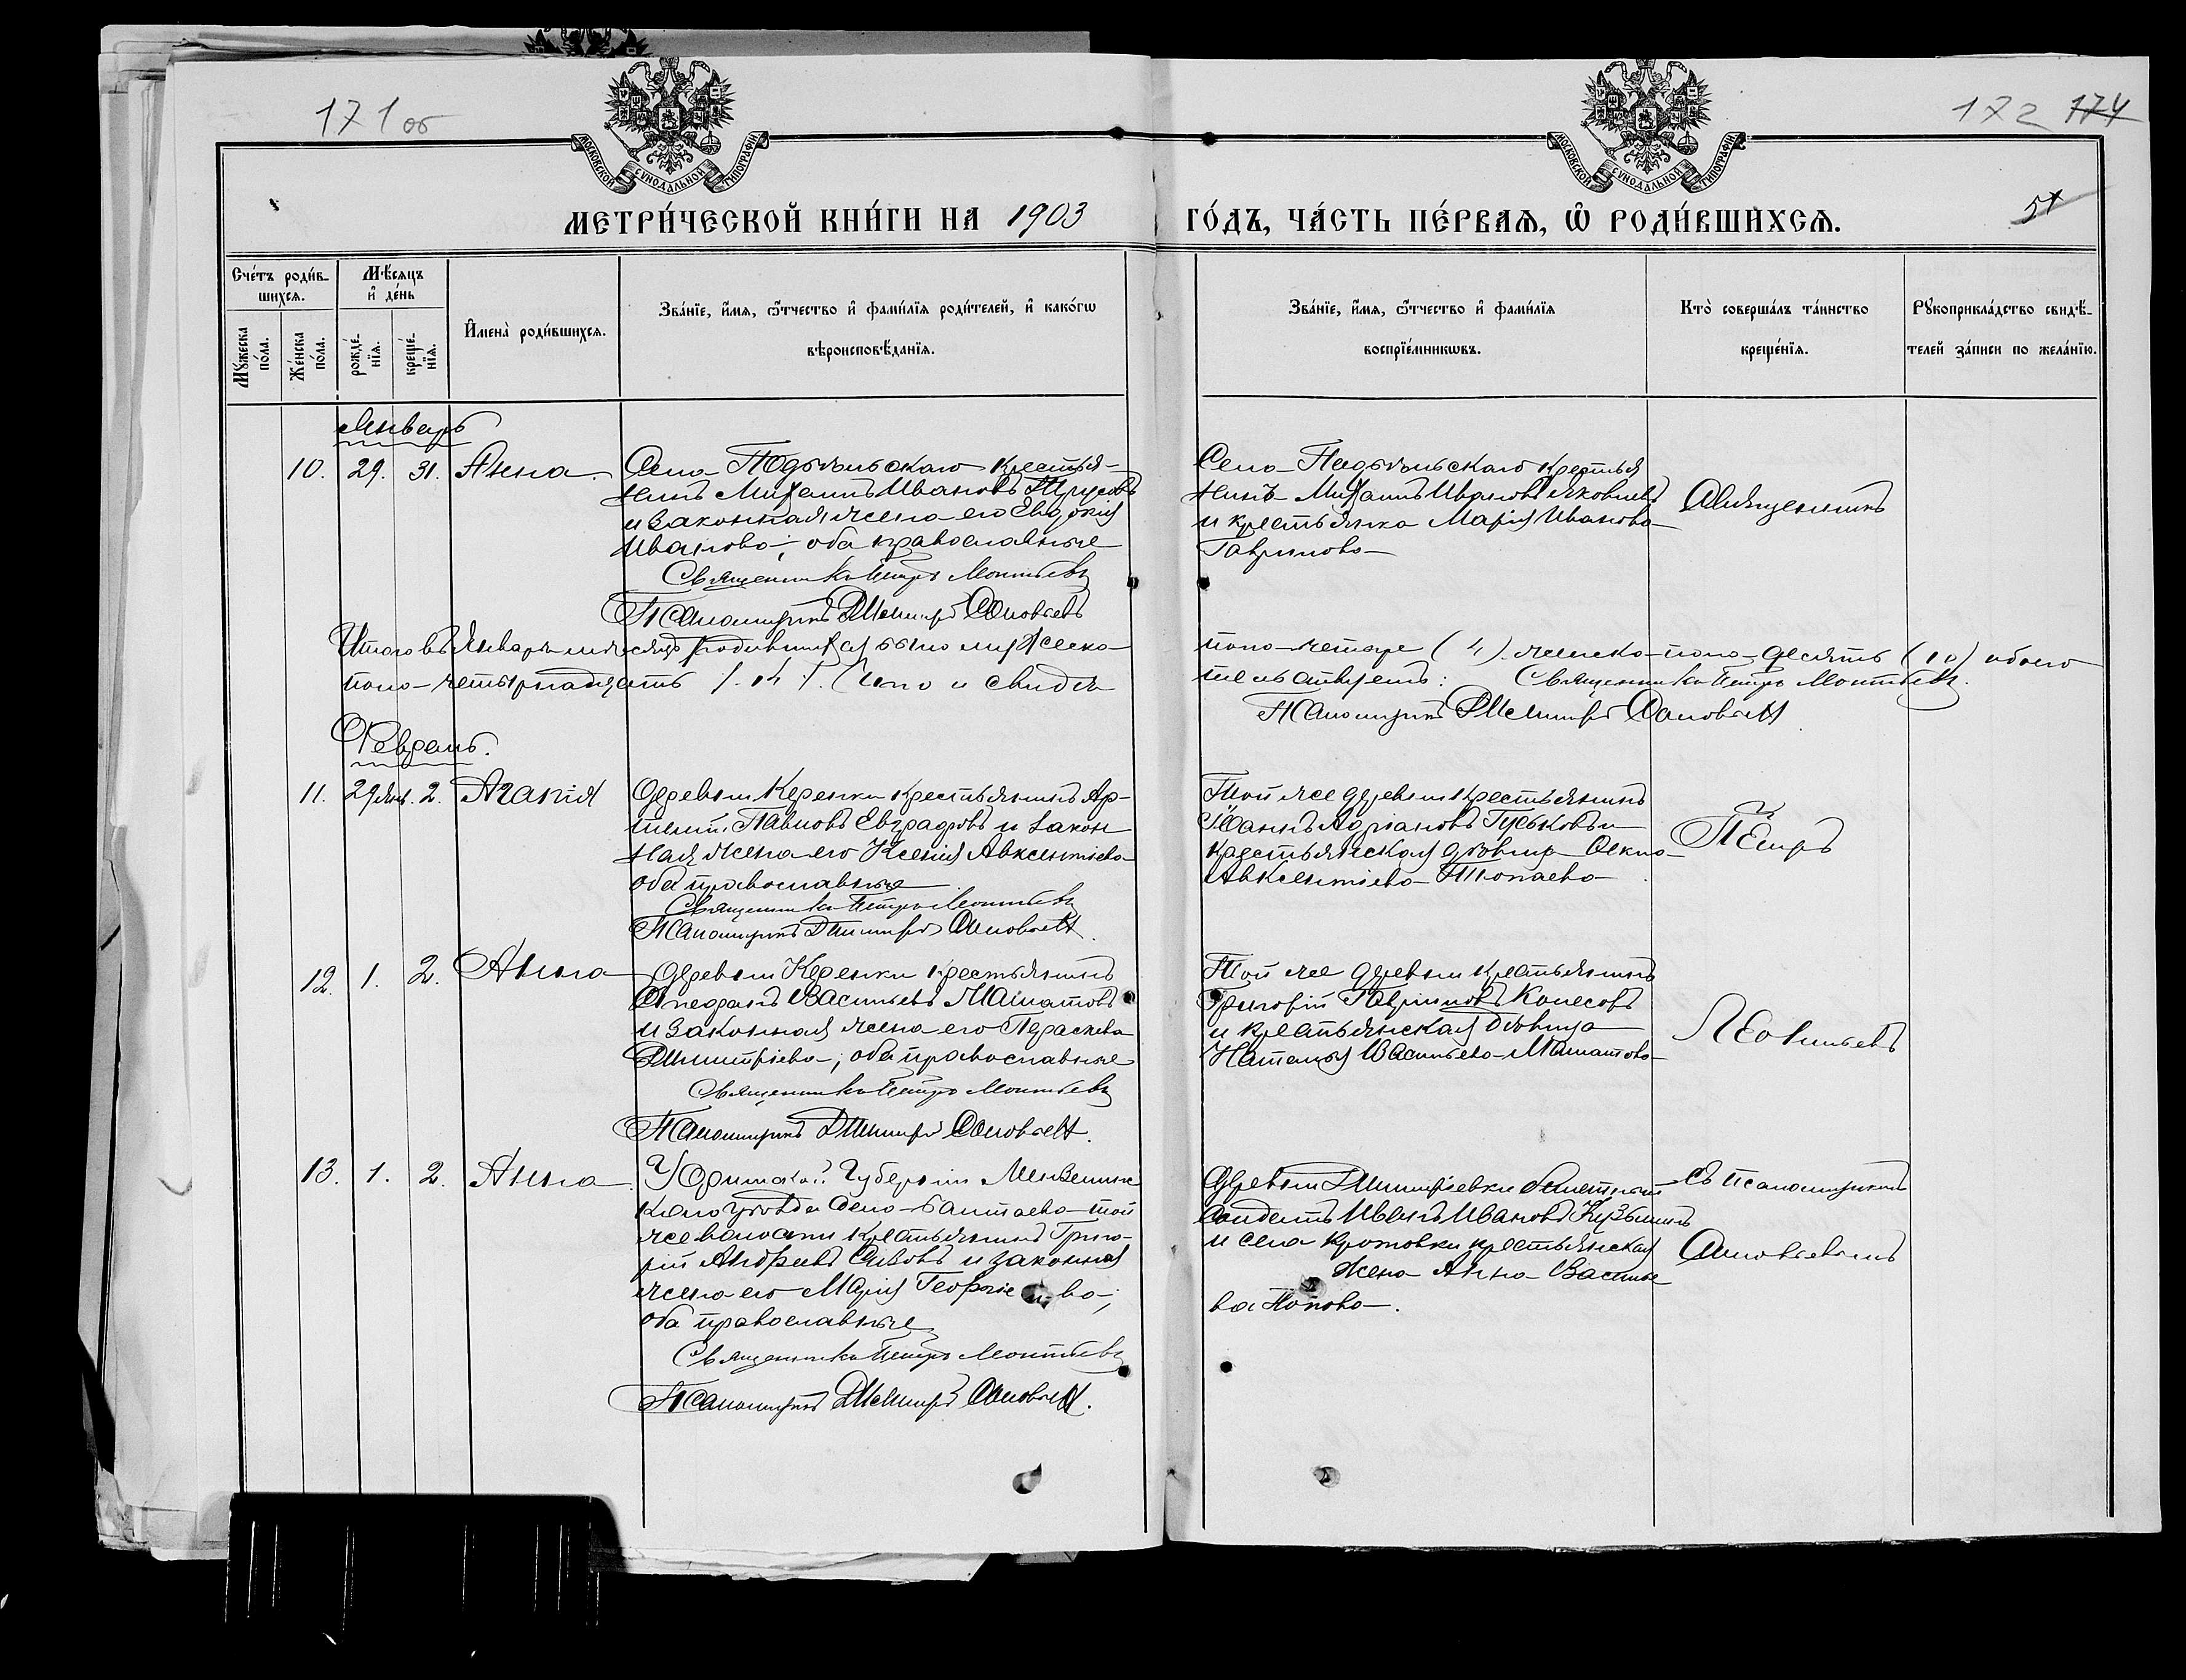 171 об
172 174
МОСКОВСКОЙ СѴНОДАЛЬНОЙ ТИПОГРАФІИ
МОСКОВСКОЙ СѴНОДАЛЬНОЙ ТИПОГРАФІИ
МЕТРИ́ЧЕСКОЙ КНИ́ГИ НА 1903 ГО́ДЪ, ЧА́СТЬ ПЕ́РВАѦ, Ѡ҆ РОДИ́ВШИХСѦ.
Сче́тъ роди́в-
шихсѧ.
Мꙋ́жеска по́ла.
Же́нска по́ла.
Мѣ́сѧцъ
и҆ де́нь
рожде́-
нїѧ.
креще́-
нїѧ.
И҆мена̀ роди́вшихсѧ.
Зва́нїе, и҆́мѧ, ѻ҆́тчество и҆ фами́лїѧ роди́телей, и҆ како́гѡ
вѣроисповѣ́данїѧ.
Зва́нїе, и҆́мѧ, ѻ҆́тчество и҆ фами́лїѧ
воспрїе́мникѡвъ.
Кто̀ соверша́лъ та́инство
креще́нїѧ.
Рꙋкоприкла́дство свидѣ́-
телей за́писи по жела́нїю.
Январь
10. 29. 31. Анна.
Села Подъ крестья-
нинъ Михаилъ Ивановъ
и законная жена его Евдокия
Иванова; оба православные
Священникъ Петръ Леонтьевъ
Псаломщикъ Димитрій Соловьевъ
Села крестья
нинъ Михаилъ Ивановъ Яковлевъ
и крестьянка Марія Иванова
Гаврилова
Священникъ
Итого въ Январѣ мѣсяцѣ родившихся было мужеска
пола четыре (4) женска пола десять (10) обоего
пола четырнадцать /. 14 /. Что и свидѣ
тельствуемъ: Священникъ Петръ Леонтьевъ.
Псаломщикъ Димитрій Соловьевъ
Февраль.
11. 29 янв. 2. Агапія
Деревни Керенки крестьянинъ Ар-
темій Павловъ Евграфовъ и закон
ная жена его Ксенія Авксентіева
оба православные
Священникъ Петръ Леонтьевъ
Псаломщикъ Димитрій Соловьевъ.
Той же деревни крестьянинъ
Іоаннъ Адріановъ Гуськовъ и
крестьянская дѣвица
Авксентіева
Петръ
12. 1. 2. Анна
Деревни Керенки крестьянинъ
Васильевъ
и законная жена его Параскева
Димитріева; оба православные
Священникъ Петръ Леонтьевъ
Псаломщикъ Димитрій Соловьевъ.
Той же деревни крестьянинъ
Григорій Гавриловъ Колесовъ
и крестьянская дѣвица
Наталья Васильева
Леонтьевъ
13. 1. 2. Анна.
Уфимской Губерніи Мензелинс
каго уѣзда села той
же волости крестьянинъ Григо-
рій Андреевъ Сивовъ и законная
жена его Марія Георгіева;
оба православные
Священникъ Петръ Леонтьевъ
Псаломщикъ Димитрій Соловьевъ.
Деревни Димитріевки
солдатъ Иванъ Ивановъ Кузьминъ
и села Кротовки крестьянская
жена Анна Василье
ва Попова.
съ псаломщикомъ
Соловьевымъ